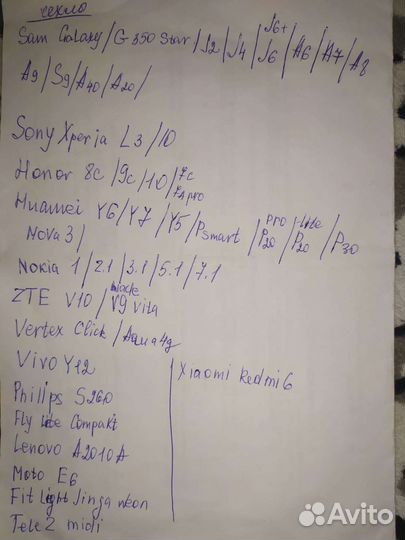 чехло
Sam Galaxy/G 350 Star/J2/J4/J6/J6+/A6/A7/A8
A9/S9/A40/A20/
Sony Xperia L3/10
Honor 8c/9c/10/7c
7A pro
Huawei Y6/Y7/Y5/Psmart/P20 pro/P20 Lite/P30
Nova 3/
Nokia 1/2.1/3.1/5.1/7.1
ZTE V10/V9 vita
Vertex Click/Aqua 4g
Vivo Y12
Xiaomi Redmi 6
Philips S260
Fly Compakt
Lenovo A2010A
Moto E6
Fit Light Jinga neon
Tele2 midi
Avito